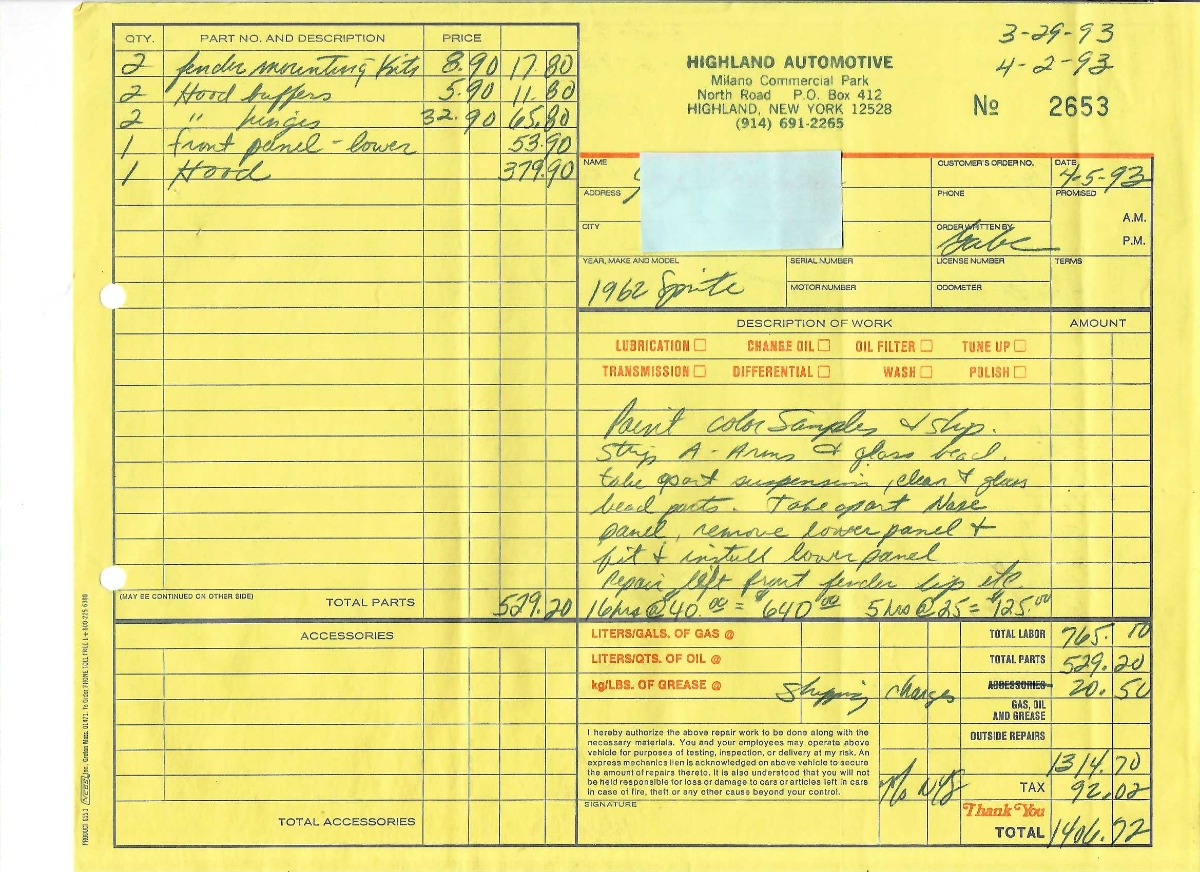 3-29-93
4-2-93
HIGHLAND AUTOMOTIVE
Milano Commercial Park
North Road P.O. Box 412
HIGHLAND, NEW YORK 12528
(914) 691-2265
No 2653
QTY. PART NO. AND DESCRIPTION PRICE
2 fender mounting Kits 8.90 17.80
2 Hood buffers 5.90 11.80
2 " hinges 32.90 65.80
1 front panel - lower 53.90
1 Hood 379.90
(MAY BE CONTINUED ON OTHER SIDE)
TOTAL PARTS 529.20
ACCESSORIES
TOTAL ACCESSORIES
NAME
CUSTOMER'S ORDER NO.
DATE 4-5-93
ADDRESS
PHONE
PROMISED
A.M.
P.M.
CITY
ORDER WRITTEN BY Gabe
YEAR, MAKE AND MODEL
1962 Sprite
SERIAL NUMBER
LICENSE NUMBER
TERMS
MOTOR NUMBER
ODOMETER
DESCRIPTION OF WORK AMOUNT
LUBRICATION CHANGE OIL OIL FILTER TUNE UP
TRANSMISSION DIFFERENTIAL WASH POLISH
Paint color Samples & ship.
Strip A-Arms & glass bead.
take apart suspension, clean & glass
bead parts. Take apart Nose
panel, remove lower panel &
fit & install lower panel
Repair left front fender lip etc
16 hrs @ 40 00 = $640 00 5 hrs @ 25 = $125.00
LITERS/GALS. OF GAS @
TOTAL LABOR 765.00
LITERS/QTS. OF OIL @
TOTAL PARTS 529.20
kg/LBS. OF GREASE @
Shipping charges ACCESSORIES 20.50
GAS, OIL
AND GREASE
OUTSIDE REPAIRS
I hereby authorize the above repair work to be done along with the
necessary materials. You and your employees may operate above
vehicle for purposes of testing, inspection, or delivery at my risk. An
express mechanics lien is acknowledged on above vehicle to secure
the amount of repairs thereto. It is also understood that you will not
be held responsible for loss or damage to cars or articles left in cars
in case of fire, theft or any other cause beyond your control.
SIGNATURE
1314.70
NYS TAX 92.02
Thank You
TOTAL 1406.72